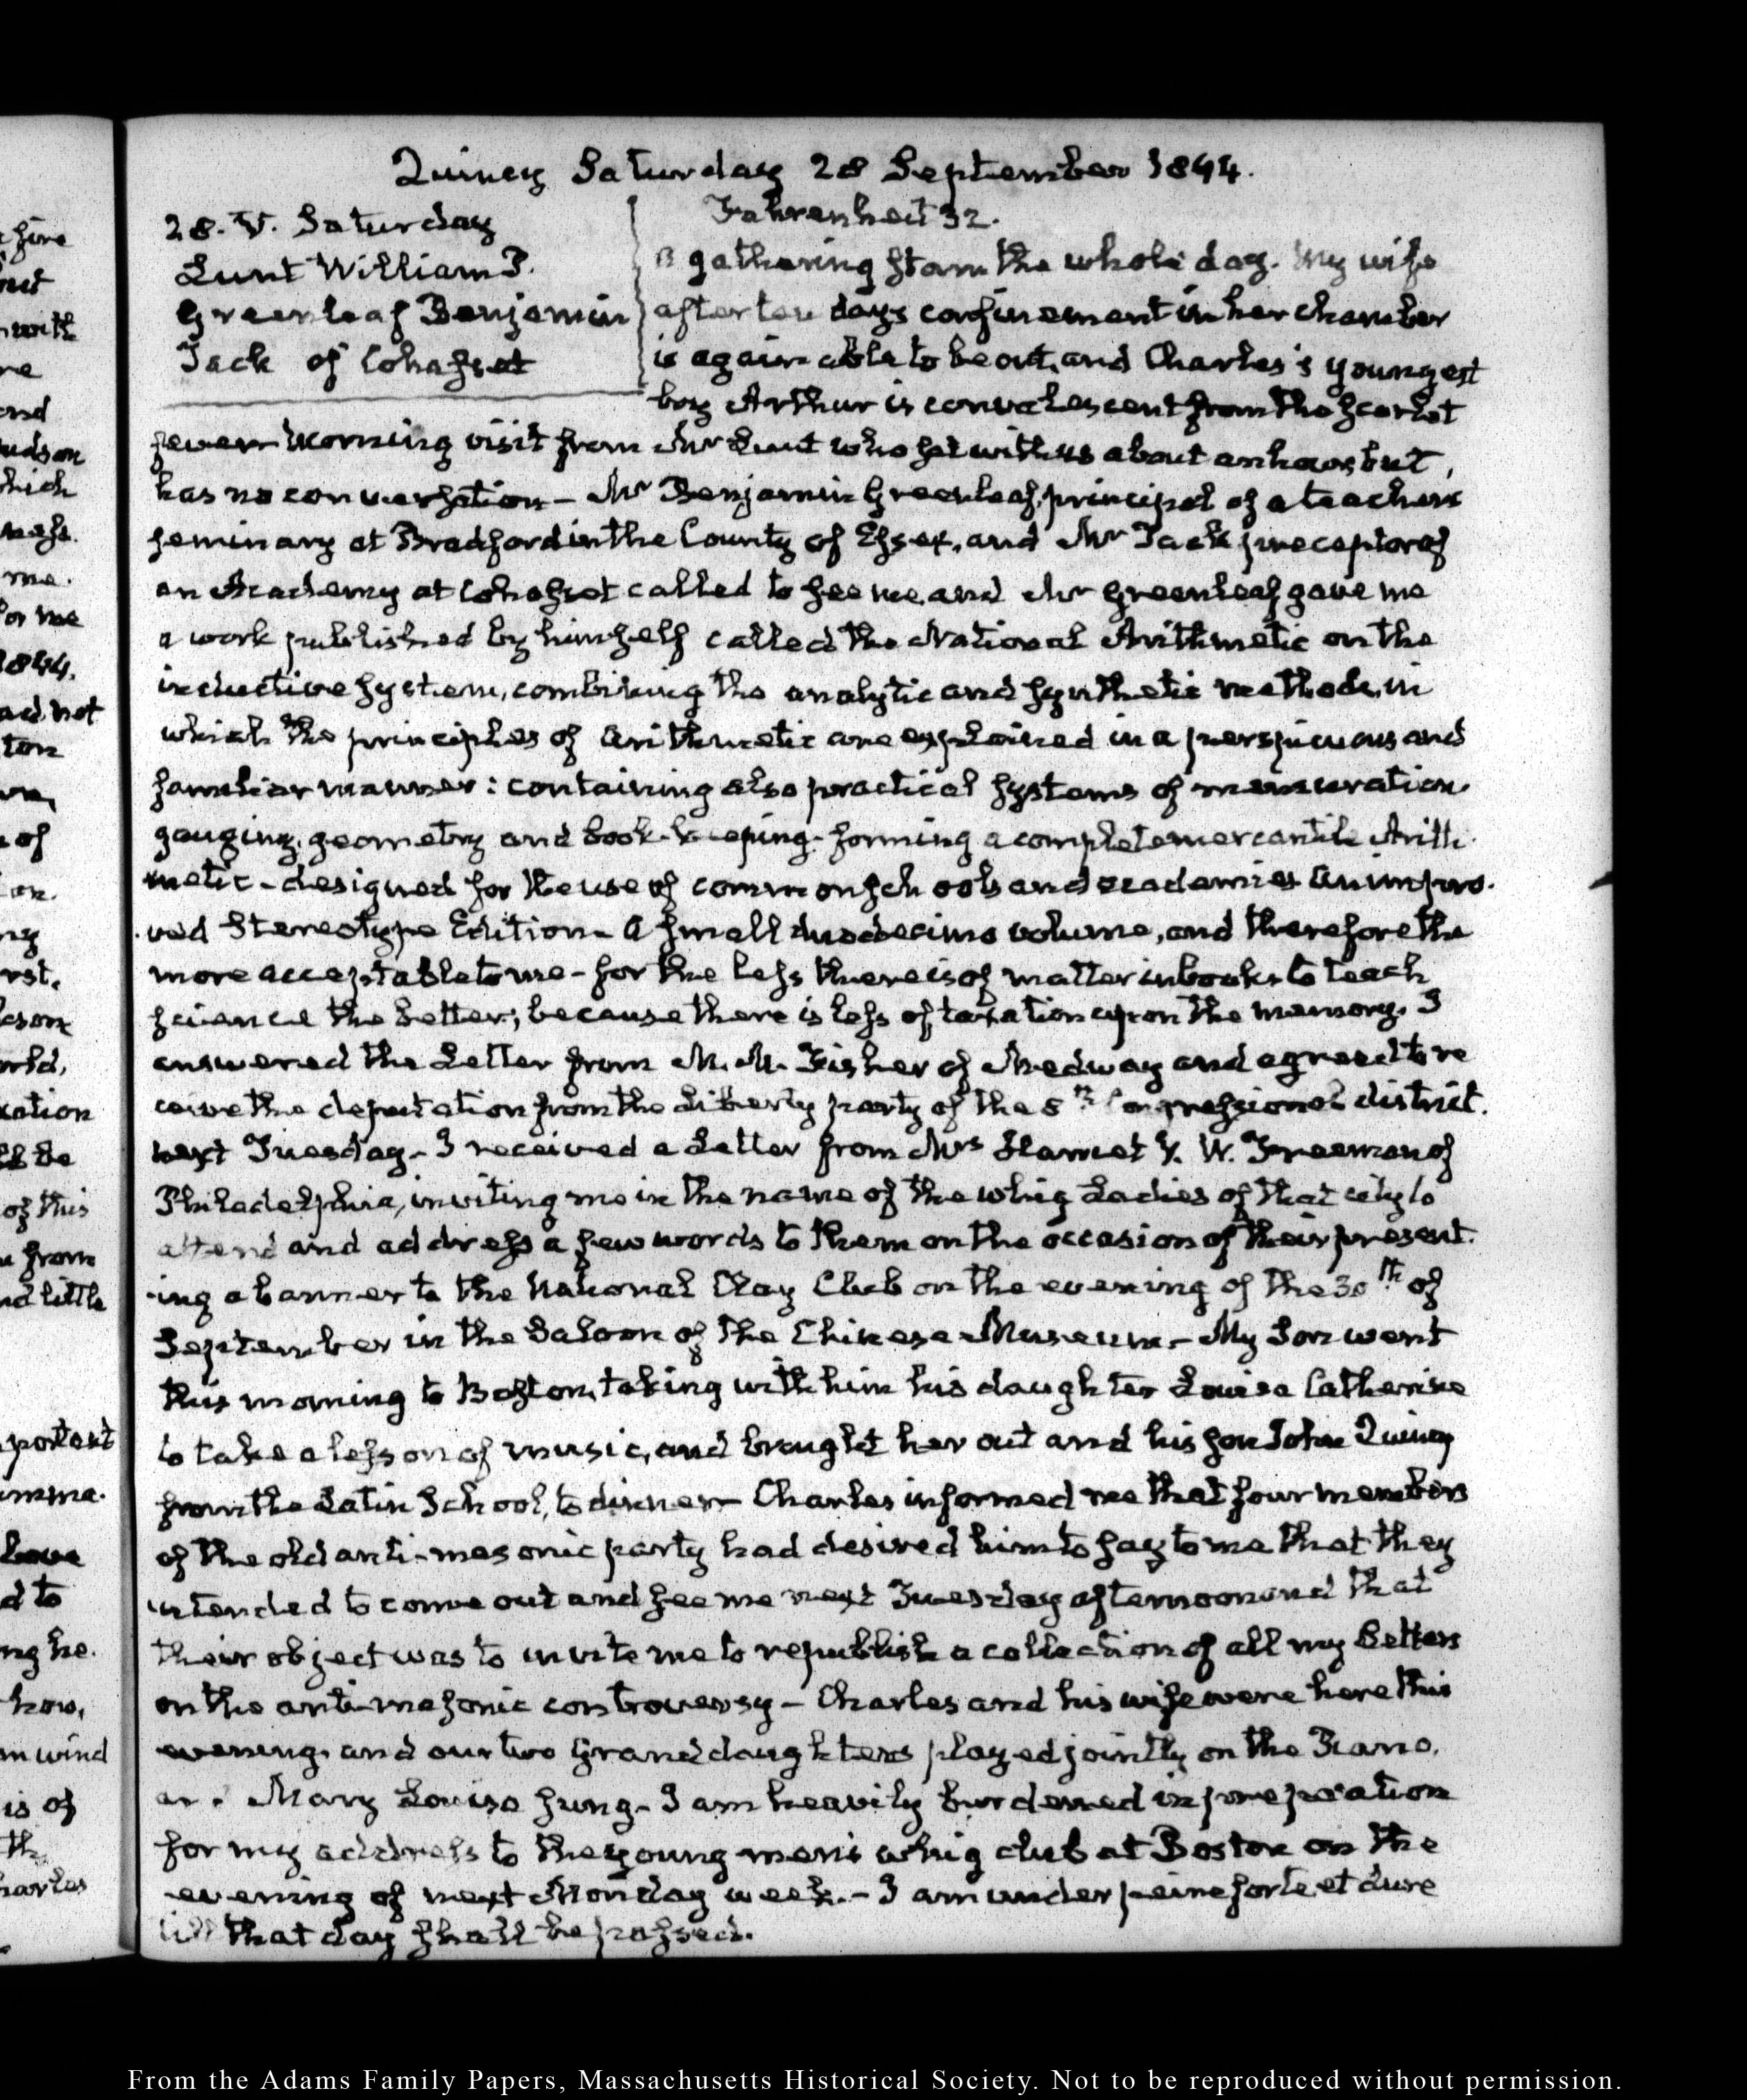 Quincy Saturday 28 September 1844.
28. V. Saturday
Lunt William P.
Greenleaf Benjamin
Jack of Cohasset
Fahrenheit 32.
a gathering storm the whole day. My wife
after ten days confinement in her chamber
is again able to be out, and Charles's youngest
boy Arthur is convalescent from the scarlet
fever. Morning visit from Mr Lunt who sat with us about an hour, but
has no conversation - Mr Benjamin Greenleaf, principal of a teachers
seminary at Bradford in the County of Essex, and Mr Jack preceptor of
an Academy at Cohasset called to see me, and Mr Greenleaf gave me
a work published by himself called the National Arithmetic on the
inductive system, combining the analytic and synthetic methods, in
which the principles of Arithmetic are explained in a perspicuous and
familiar manner: containing also practical systems of mensuration.
gauging, geometry and book-keeping - forming a complete mercantile Arith
metic - designed for the use of common schools and academies. An impro-
ved Stereotype Edition - A small duodecimo volume, and therefore the
more acceptable to me - for the less there is of matter in books to teach
science the better, because there is less of taxation upon the memory. I
answered the Letter from M. M. Fisher of Medway and agreed to re
ceive the deputation from the Liberty party of the 8th Congressional district.
next Tuesday - I received a Letter from Mrs Harriet Y. W. Freeman of
Philadelphia, inviting me in the name of the whig Ladies of that city to
attend and address a few words to them on the occasion of their present.
ing a banner to the National Clay Club on the evening of the 30th of
September in the Saloon of the Chinese Museum - My Son went
this morning to Boston, taking with him his daughter Louisa Catherine
to take a lesson of music, and brought her out and his son John Quincy
from the Latin School, to dinner - Charles informed me that four members
of the old anti-masonic party had desired him to say to me that they
intended to come out and see me next Tuesday afternoon and that
their object was to invite me to republish a collection of all my Letters
on the anti-masonic controversy - Charles and his wife were here this
evening, and our two Granddaughters played jointly on the Piano,
and Mary Louisa sung - I am heavily burdened in preparation
for my address to the young men's whig club at Boston on the
evening of next Monday week. - I am under peine forte et dure
till that day shall be passed.
From the Adams Family Papers, Massachusetts Historical Society. Not to be reproduced without permission.